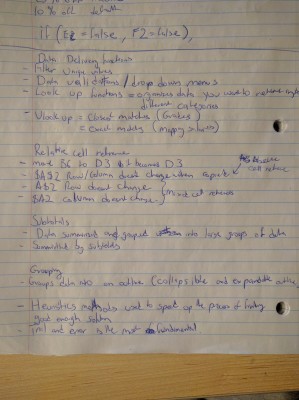 10% all default
if (E2 = false, F2 = false),
Data Delivery functions
- filter unique values
- Data validations / drop down menus
- Look up functions = organises data you want to retrieve
different categories
- Vlookup = closest matches
= exact matches
Relative cell reference
- move B6 to D3 becomes D3
- $A$2 Row/column doesnt change when copied
cell reference
- A$2 Row doesnt change
- $A2 column doesnt change
Subtotals
- Data summarised and grouped into large group of data
- Summarised by subtotals
Grouping
- Groups data into an outline (collapsible and expandable outline
- Heuristics methods used to speed up the process of finding
good enough solution
- Trial and error is the most fundamental